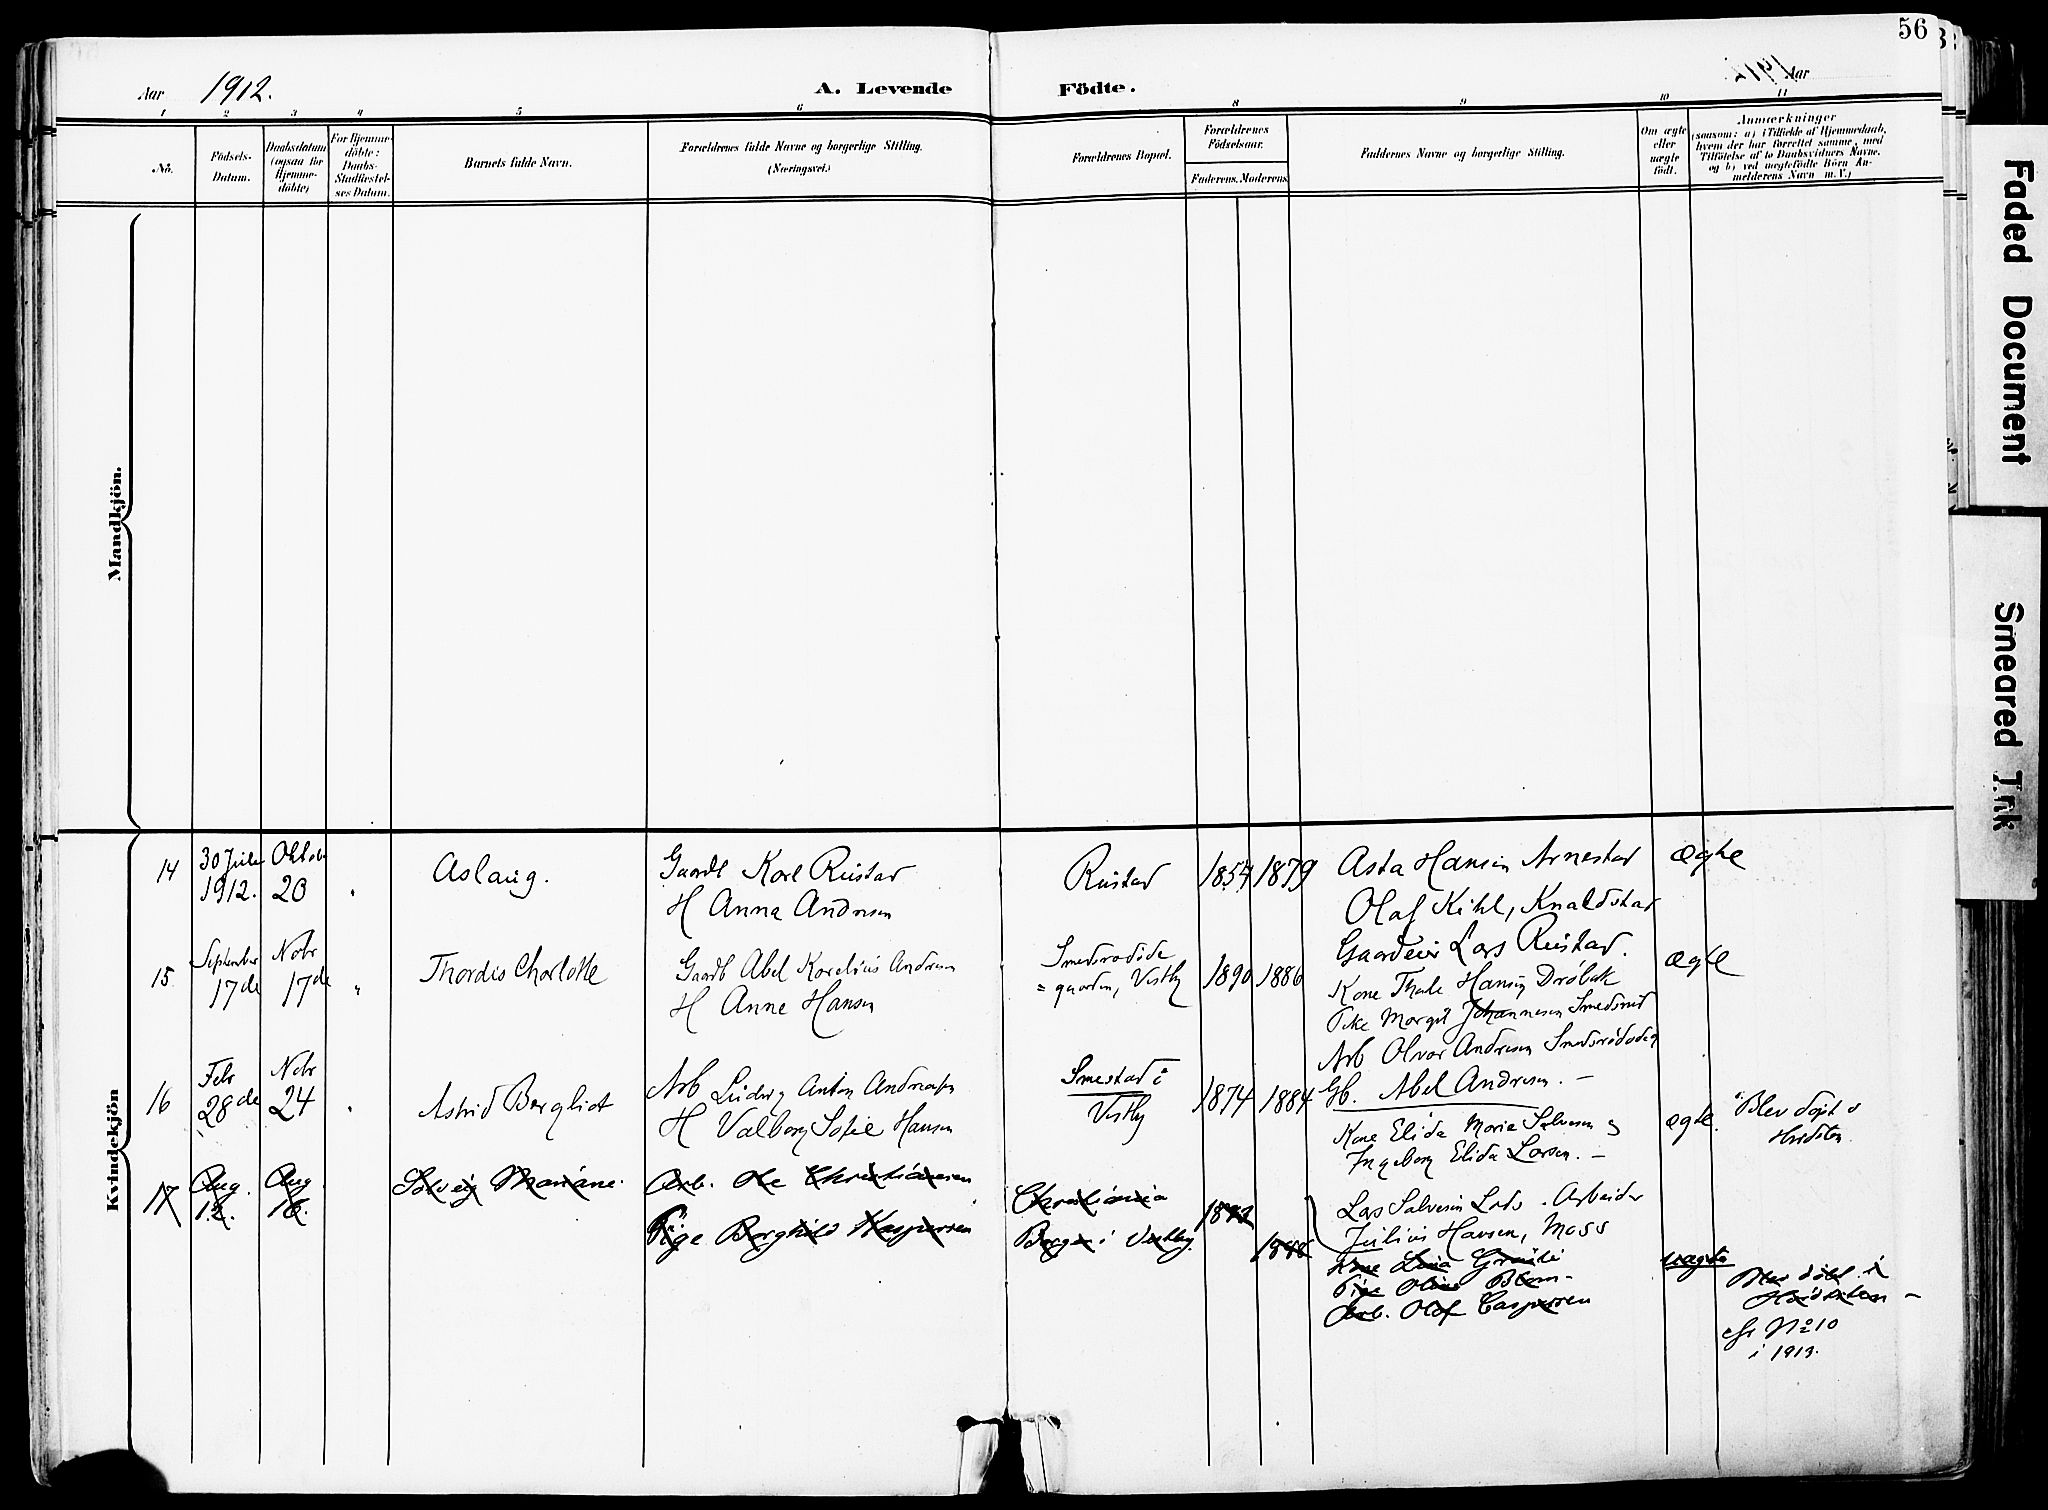 56
Aar 1912. A. Levende Födte. 1912. Aar
1 2 3 4 5 6 8 9 10 11
No.
Födsels-
Datum.
Daabsdatum
(ogsaa for
Hjemme-
döbte)
For Hjemme-
döbte:
Daabs-
Stadfæstel-
ses Datum.
Barnets fulde Navn.
Forældrenes fulde Navne og borgerlige Stilling.
(Næringsvei.)
Forældrenes Bopæl.
Forældrenes
Födselsaar.
Faderens. Moderens.
Faddernes Navne og borgerlige Stilling.
Om ægte
eller
uægte
födt.
Anmærkninger
(saasom: a) i Tilfælde af Hjemmedaab,
hvem der har forrettet samme, med
Tilföielse af to Daabsvidners Navne.
og b) ved uægtefödte Börn An-
melderens Navn m. V.)
Mandkjön.
Kvindekjön
14
30 Juli
1912.
Oktob
20
"
Aslaug.
Gaardb Karl Rustad
H Anna Andresen
Rustad
1854 1879
Asta Hansen Arnestad
Olaf Kihl, Knaldstad
Gaardeier Lars Rustad.
ægte
15
September
17de
Nobr
17de
"
Thordis Charlotte
Gaardb Abel Korelius Andresen
H Anne Hansen
Smedsrødide
= gaarden, Vestby
1890 1886
Kone Thale Hansen Drøbak
Pike Margit Johannesen Smedsrud
Arb Olvar Andresen
Gb. Abel Andresen. –
ægte
16
Febr
28de
Nobr
24
"
Astrid Bergliot
Arb Ludvig Anton Andreasen
H Valborg Sofie Hansen
Smestad i
Vestby
1874 1884
Kone Elida Marie Salvesen og
Ingeborg Elida Larsen. –
Lars Salvesen . Arbeider
Julius Hansen, Moss
ægte.
Blev døpt i
Hvidsten
17
Aug.
12.
Aug.
16.
Solveig Mariane.
Arb. Ole Christiansen
Pige Borghild Kaspersen
Christiania
Borgen i Vestby.
Kone Lina
Pige Oline Blom-
Arb. Olof Caspersen
uægte
Blev døbt i
Hvidsten –
cfr No 10
i 1913.
Faded Document
Smeared Ink